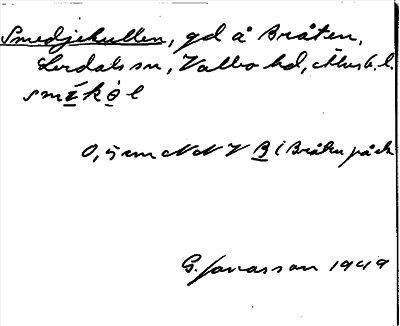 Smedjekullen, gd å Bråten,
Lerdals sn, Valbo hd, Älvsb. l.
smīkọl
0,5 cm NNV B i Bråten på ek
G. Jonasson 1949